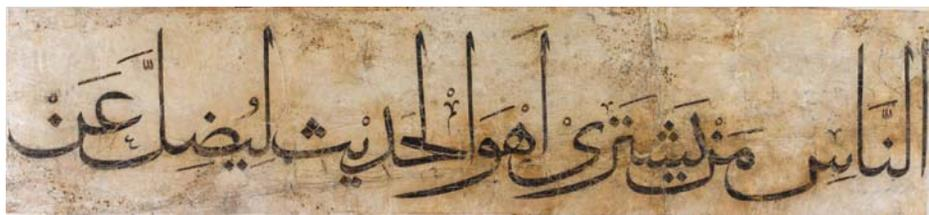 النَّاسِ مَنْ يَشْتَرِىْ لَهْوَ الْحَدِيْثِ لِيُضِلَّ عَنْ